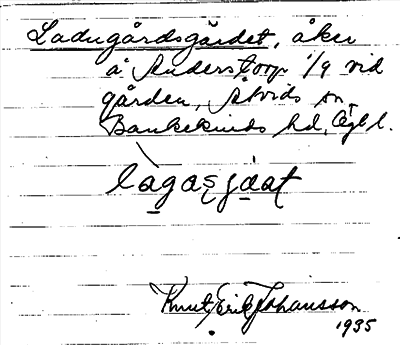 Ladugårdsgärdet, åker
å Anderstorp 1/9 vid
gården, Åtvids sn,
Bankekinds hd, Ögl.
Knut Erik Johansson
1935